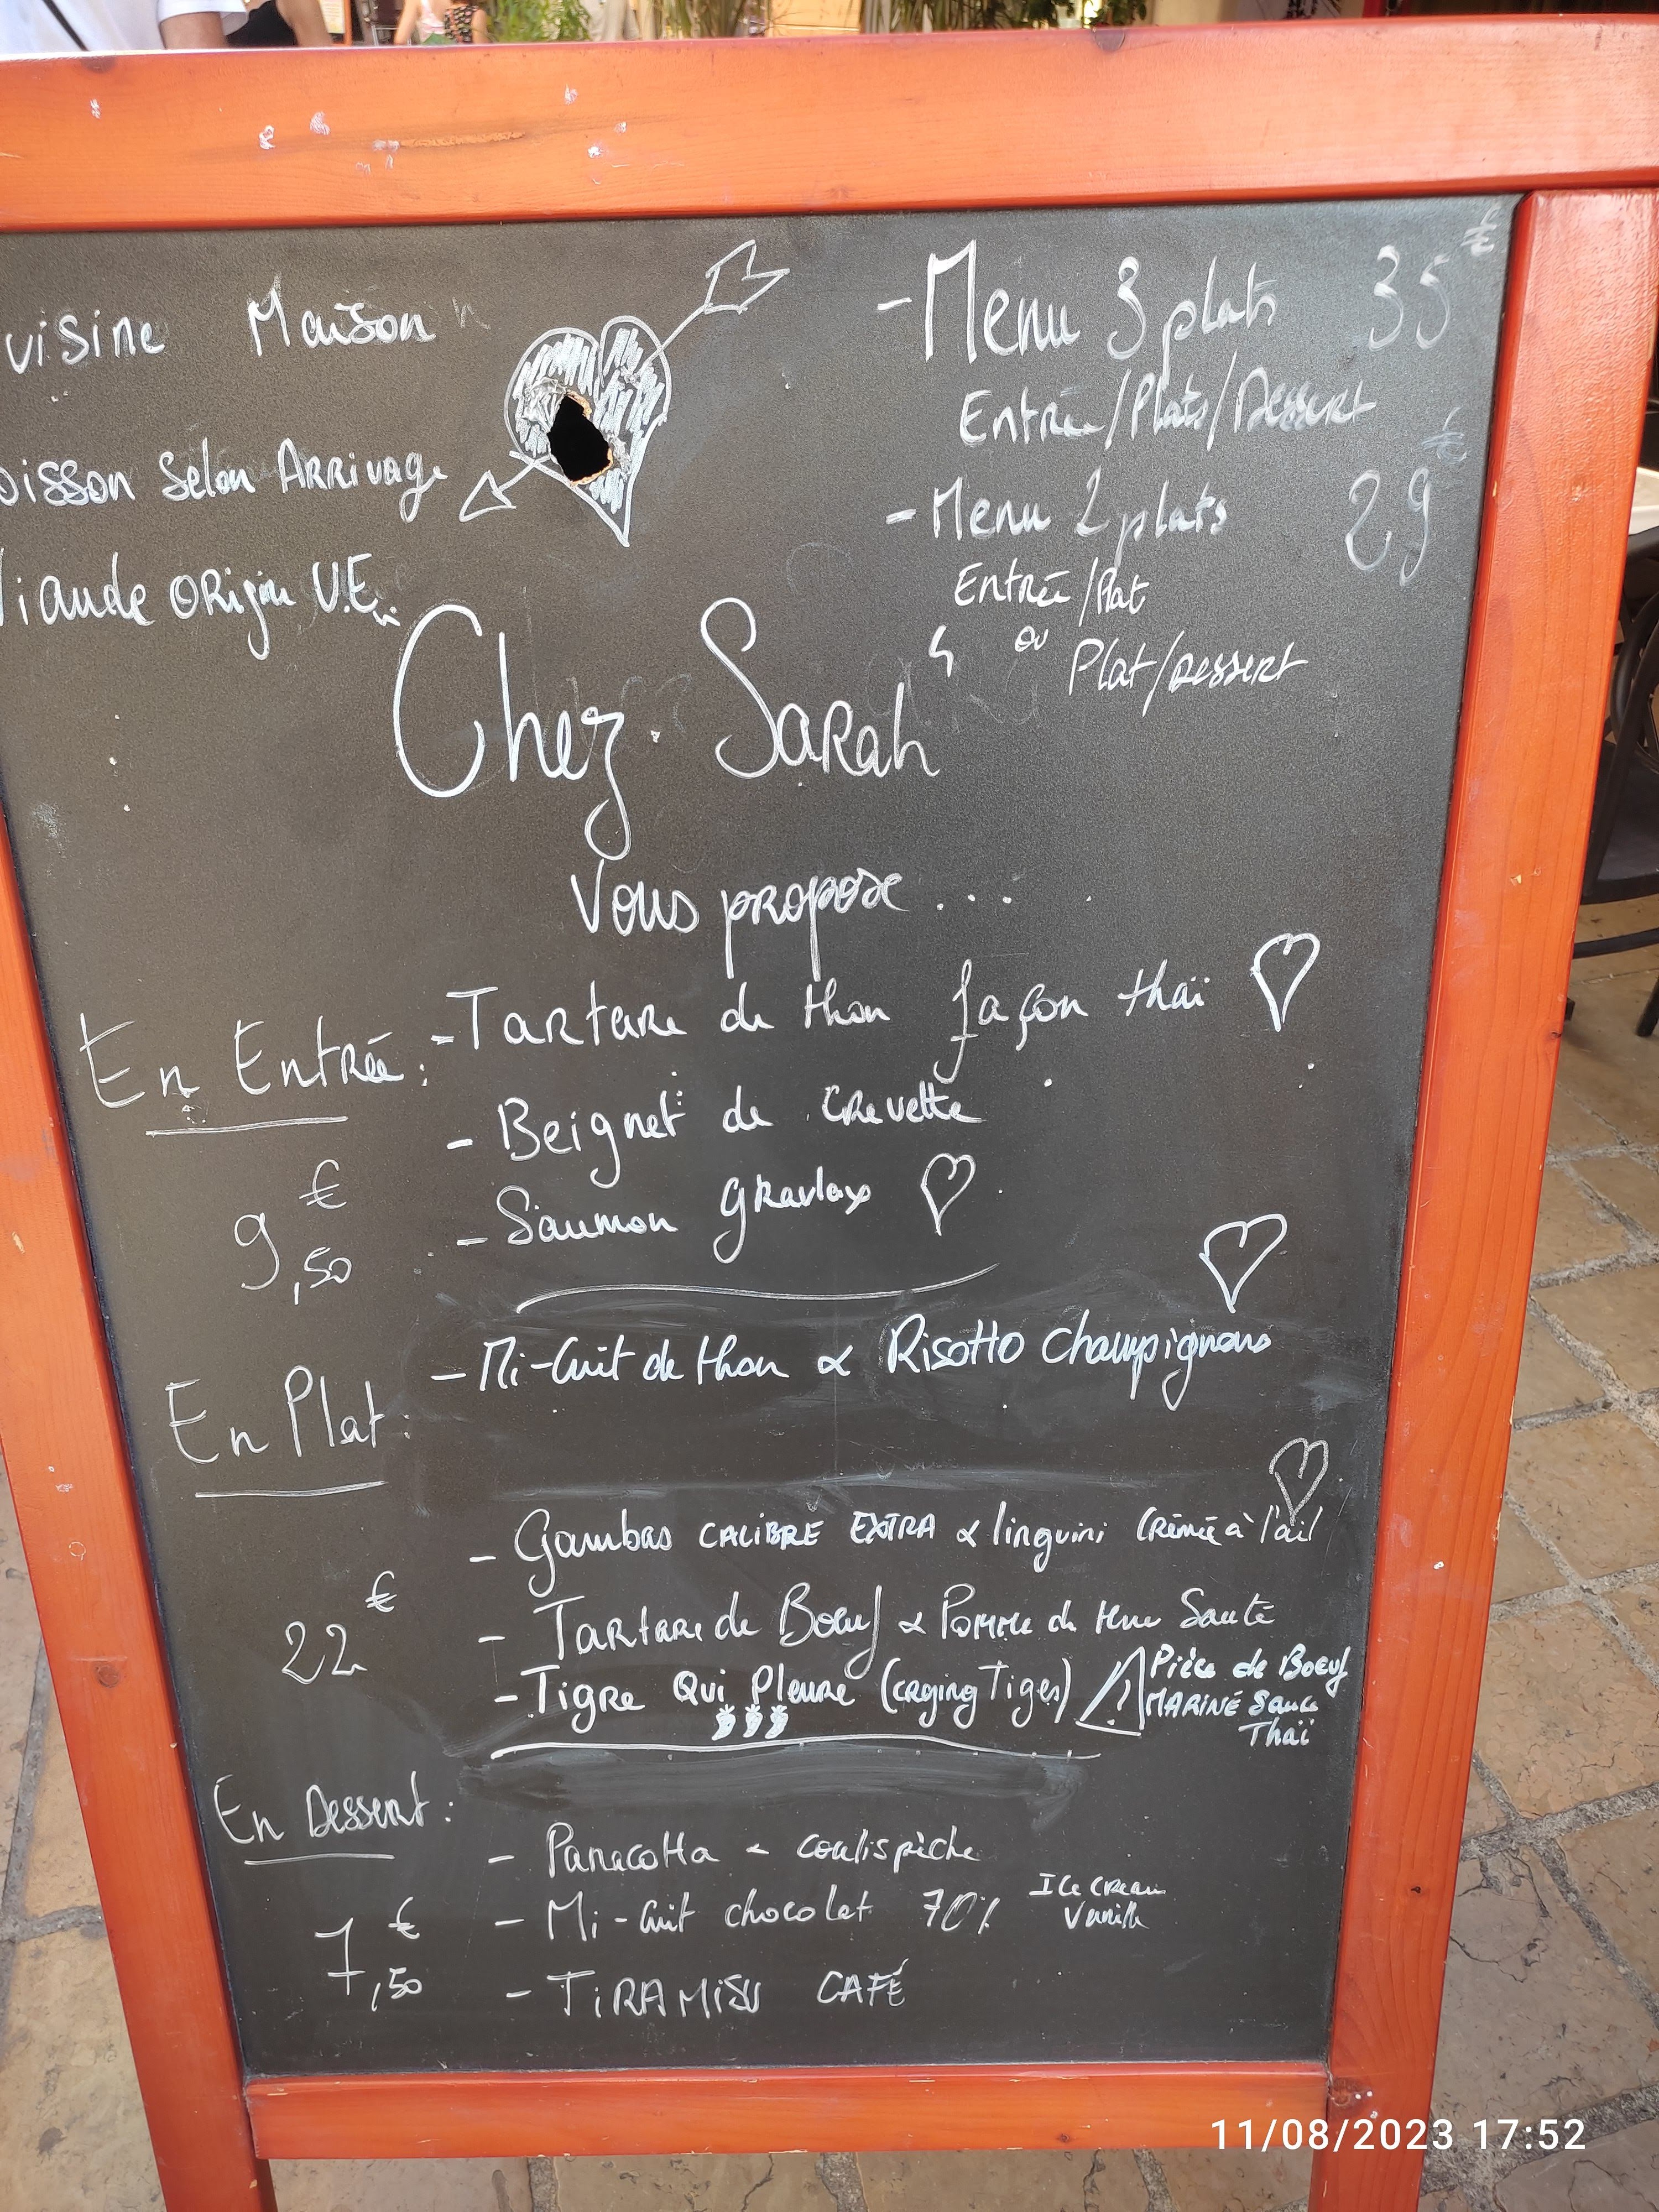 uisine Maison
oisson Selon Arrivage
Viande Origine U.E.
- Menu 3 plats 35€
Entrée/Plats/Dessert
- Menu 2 plats 29€
Entrée/Plat
ou Plat/Dessert
Chez Sarah
Vous propose ....
En Entrée :
9€,50
- Tartare de thon façon thaï
- Beignet de Crevette
- Saumon Gravlax
En Plat :
22€
- Mi-Cuit de thon & Risotto Champignons
- Gambas CALIBRE EXTRA & linguini Crémée à l'ail
- Tartare de Boeuf & Pomme de terre Sauté
- Tigre Qui Pleure (crying Tiger) ! Pièce de Boeuf
MARINÉ Sauce
Thaï
En Dessert :
7€,50
- Panacotta - coulis pêche
- Mi-Cuit chocolat 70% Ice Cream
Vanille
- TiRAMiSU CAFÉ
11/08/2023 17:52